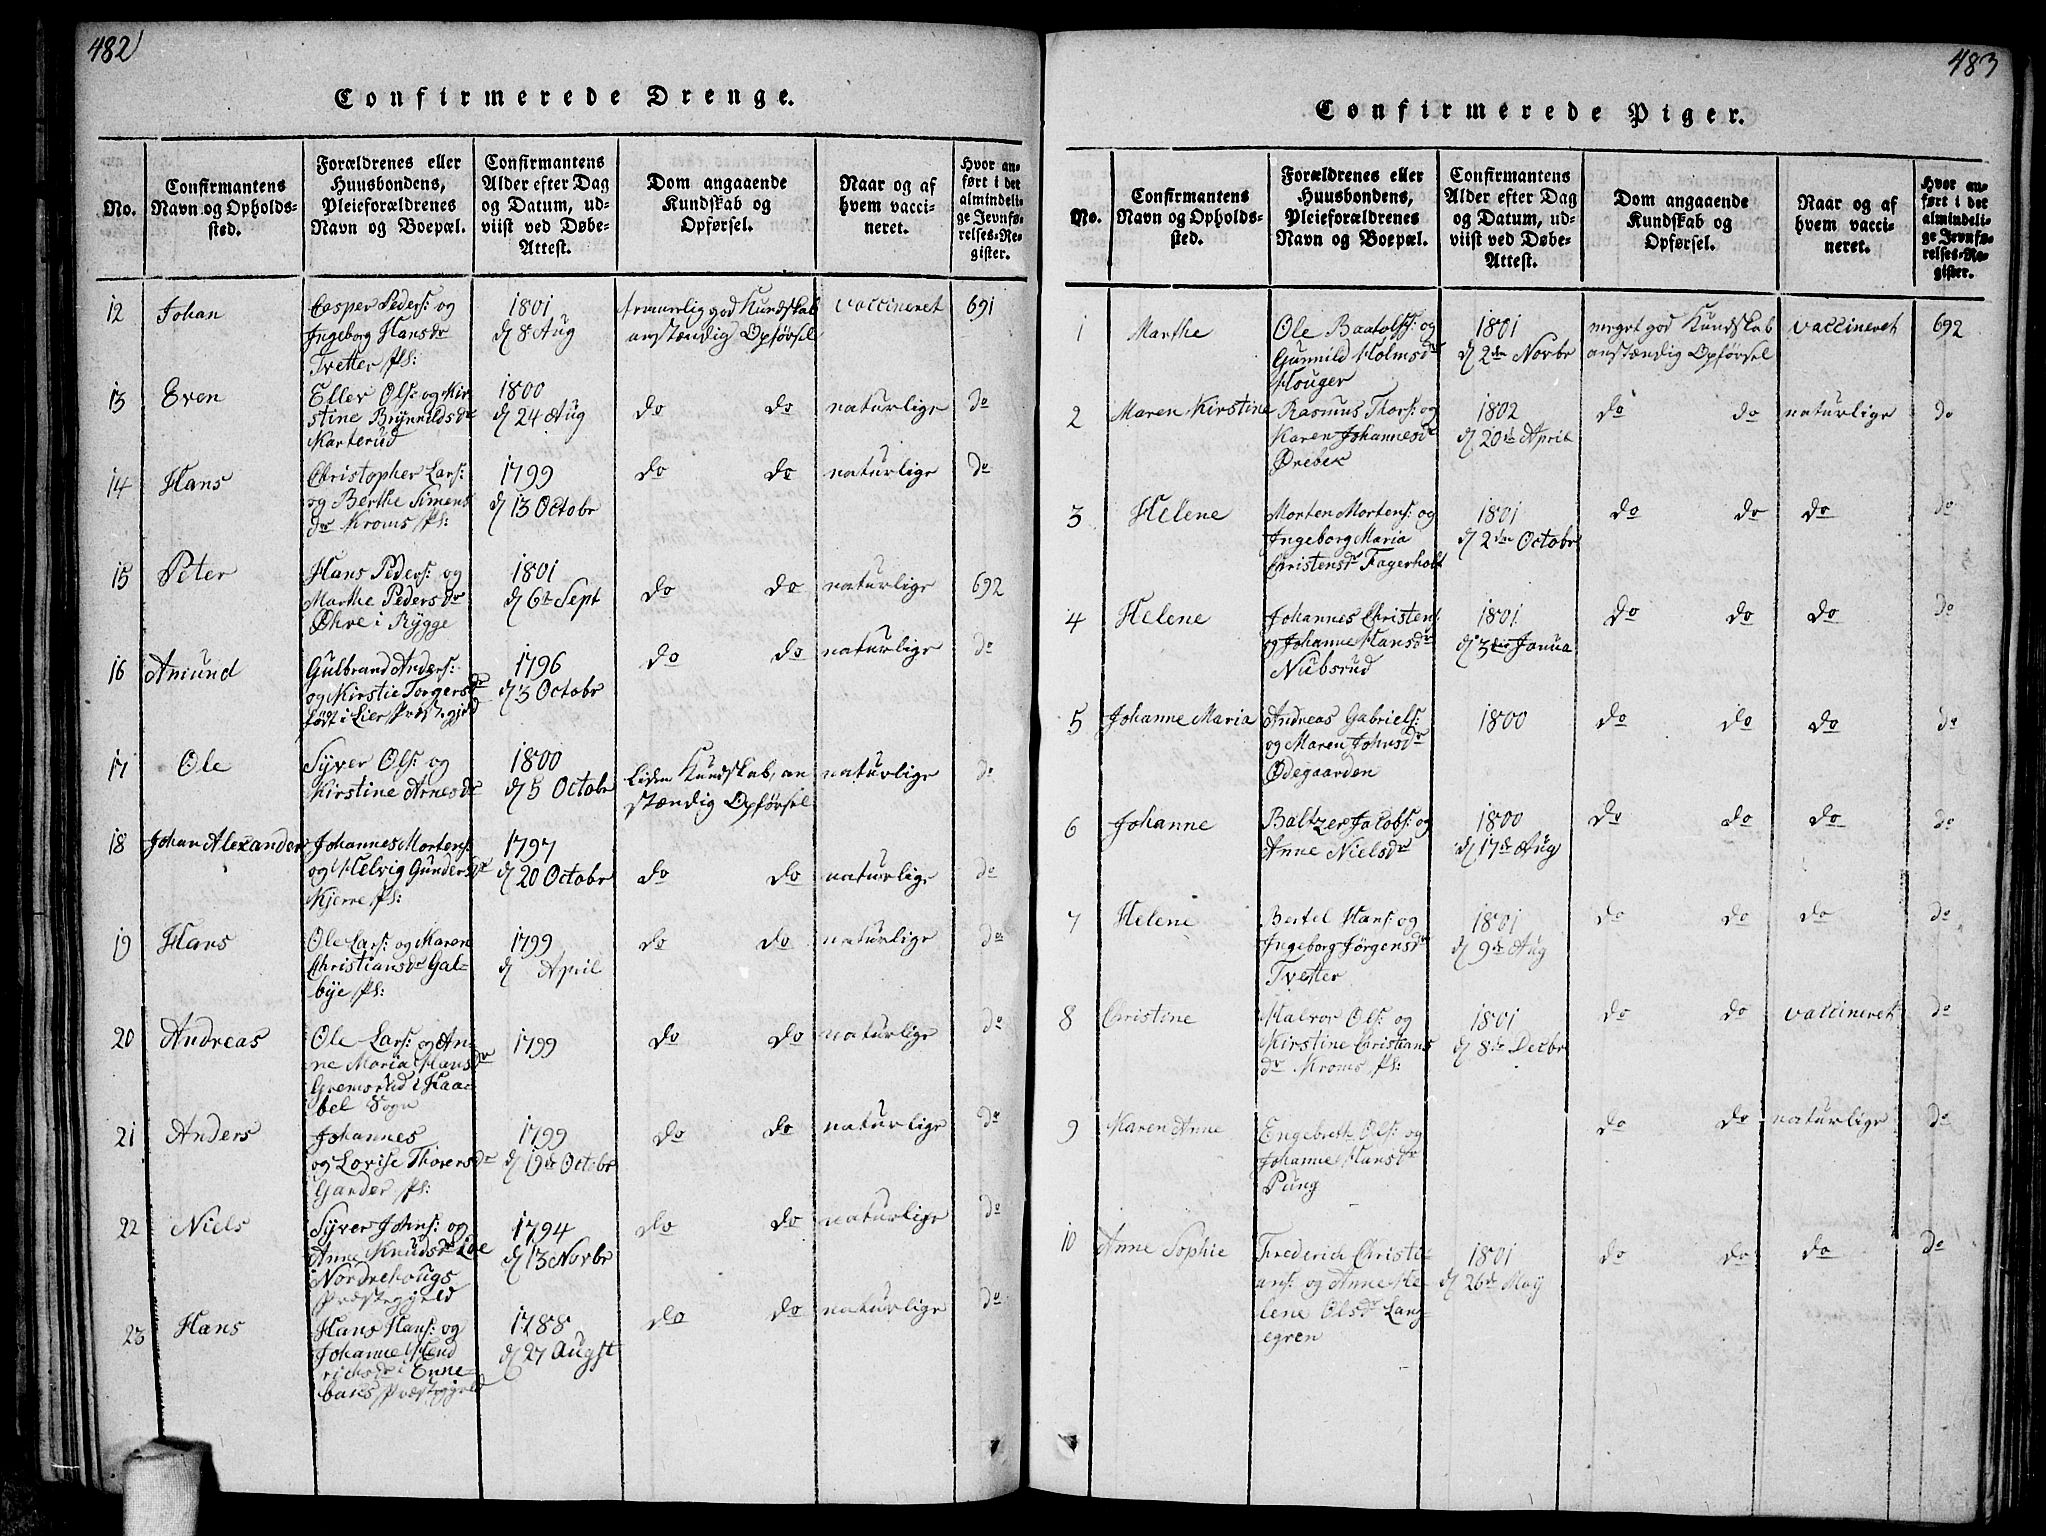 482
Confirmerede Drenge.
No.
Confirmantens
Navn og Opholds-
sted.
Forældrenes eller
Huusbondens,
Pleieforældrenes
Navn og Boepæl.
Confirmantens
Alder efter Dag
og Datum, ud-
viist ved Døbe-
Attest.
Dom angaaende
Kundskab og
Opførsel.
Naar og af
hvem vacci-
neret.
Hvor an-
ført i det
almindeli-
ge Jevnfø-
relses-Re-
gister.
12 Johan
Casper Peders: og
Ingeborg Hansdr
Tvetter Pl:
1801
d 8 Aug
temmelig god Kundskab
anstændig Opførsel
vaccineret
691
13 Even
Eller Ols: og Kir
stine Brynnildsdr
Karterud
1800
d 24 Aug
do do
naturlige
do
14 Hans
Christopher Lars:
og Berthe Simens
dr Kroms Pl:
1799
d 13 Octobr
do do
naturlige
do
15 Peter
Hans Peders: og
Marthe Pedersdr
Øhre i Rygge
1801
d 6te Sept
do do
naturlige
692
16 Amund
Gulbrand Anders:
og Kirstie Torgersdr
født i Lier Præstegjeld
1796
d 3 Octobr
do do
naturlige
do
17 Ole
Syver Ols: og
Kirstine Arnesdr
1800
d 5 Octobr
Liden Kundskab, an
stændig Opførsel
naturlige
do
18 Johan Alexander
Johannes Mortens:
og Helvig Gundersdr
Kjerre Pl:
1797
d 20 Octobr
do do
naturlige
do
19 Hans
Ole Lars: og Maren
Christiansdr Gal-
bye Pl:
1799
d April
do do
naturlige
do
20 Andreas
Ole Lars: og An-
ne Maria Hansdr
Gremsrud i Haa-
bel Sogn
1799
do do
naturlige
do
21 Anders
Johannes
og Lovise Thoersdr
Gander Pl:
1799
d 19de Octobr
do do
naturlige
do
22 Niels
Syver Johns: og
Anne Knudsdr Loe
Nordrehougs
Præstegjeld
1794
d 13 Novbr
do do
naturlige
do
23 Hans
Hans Hans: og
Johanne Hend
richsdr i Enne-
baks Præstegjeld
1788
d 27 Augst
do do
naturlige
do
483
Confirmerede Piger.
No.
Confirmantens
Navn og Opholds-
sted.
Forældrenes eller
Huusbondens,
Pleieforældrenes
Navn og Boepæl.
Confirmantens
Alder efter Dag
og Datum, ud-
viist ved Døbe-
Attest.
Dom angaaende
Kundskab og
Opførsel.
Naar og af
hvem vacci-
neret.
Hvor an-
ført i det
almindeli-
ge Jevnfø-
relses-Re-
gister.
1 Marthe
Ole Baatolfs: og
Gunnild Holmsdr
Houger
1801
d 2den Novbr
meget god Kundskab
anstændig Opførsel
vaccineret
692
2 Maren Kirstine
Rasmus Thors: og
Karen Johannesdr
Ørebek
1802
d 20de April
do do
naturlige
do
3 Helene
Morten Mortens: og
Ingeborg Maria
Christensdr Fagerholt
1801
d 2den Octobr
do do
do
do
4 Helene
Johannes Christens:
og Johanne Hansdr
Niebsrud
1801
d 3die Janua
do do
do
do
5 Johanne Maria
Andreas Gabriels:
og Maren Johnsdr
Ødegaarden
1800
do do
do
do
6 Johanne
Baltzer Jacobs: og
Anne Nielsdr
1800
d 17de Aug
do do
do
do
7 Helene
Bertel Hans: og
Ingeborg Jørgensdr
Tvetter
1801
d 9de Aug
do do
do
do
8 Christine
Halvor Ols: og
Kirstine Christians
dr Kroms Pl:
1801
d 8de Decbr
do do
vaccineret
do
9 Karen Anne
Engebreth Ols: og
Johanne Hansdr
Pung
do do
naturlige
do
10 Anne Sophie
Frederick Christi-
ans: og Anne He-
lene Olsdr Lang-
egren
1801
d 26de May
do do
do
do